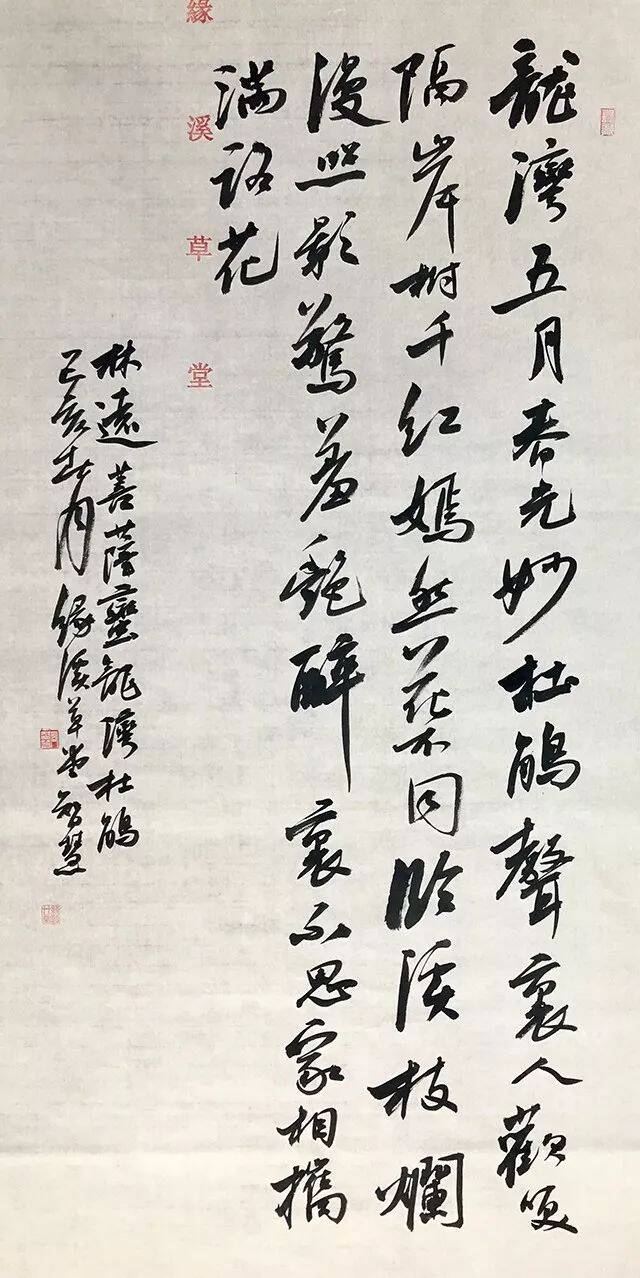 龍灣五月春光妙杜鵑聲裏人歡笑
隔岸樹千紅嫣然花不同臨溪枝爛
漫照影驚羞艷醉裏不思家相攜
滿路花
緣溪草堂
林遠菩薩蠻龍灣杜鵑
己亥春月緣溪草堂智慧